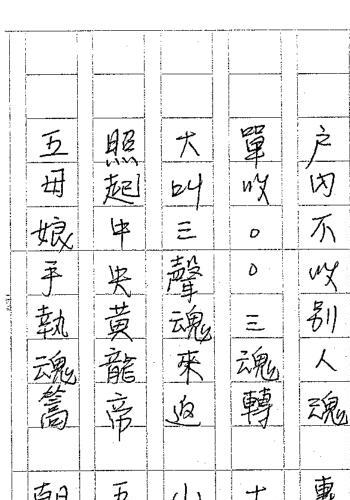 戶內不收別人魂
單收○○三魂轉
大叫三聲魂來返
照起中央黃龍帝
五母娘手執魂篙